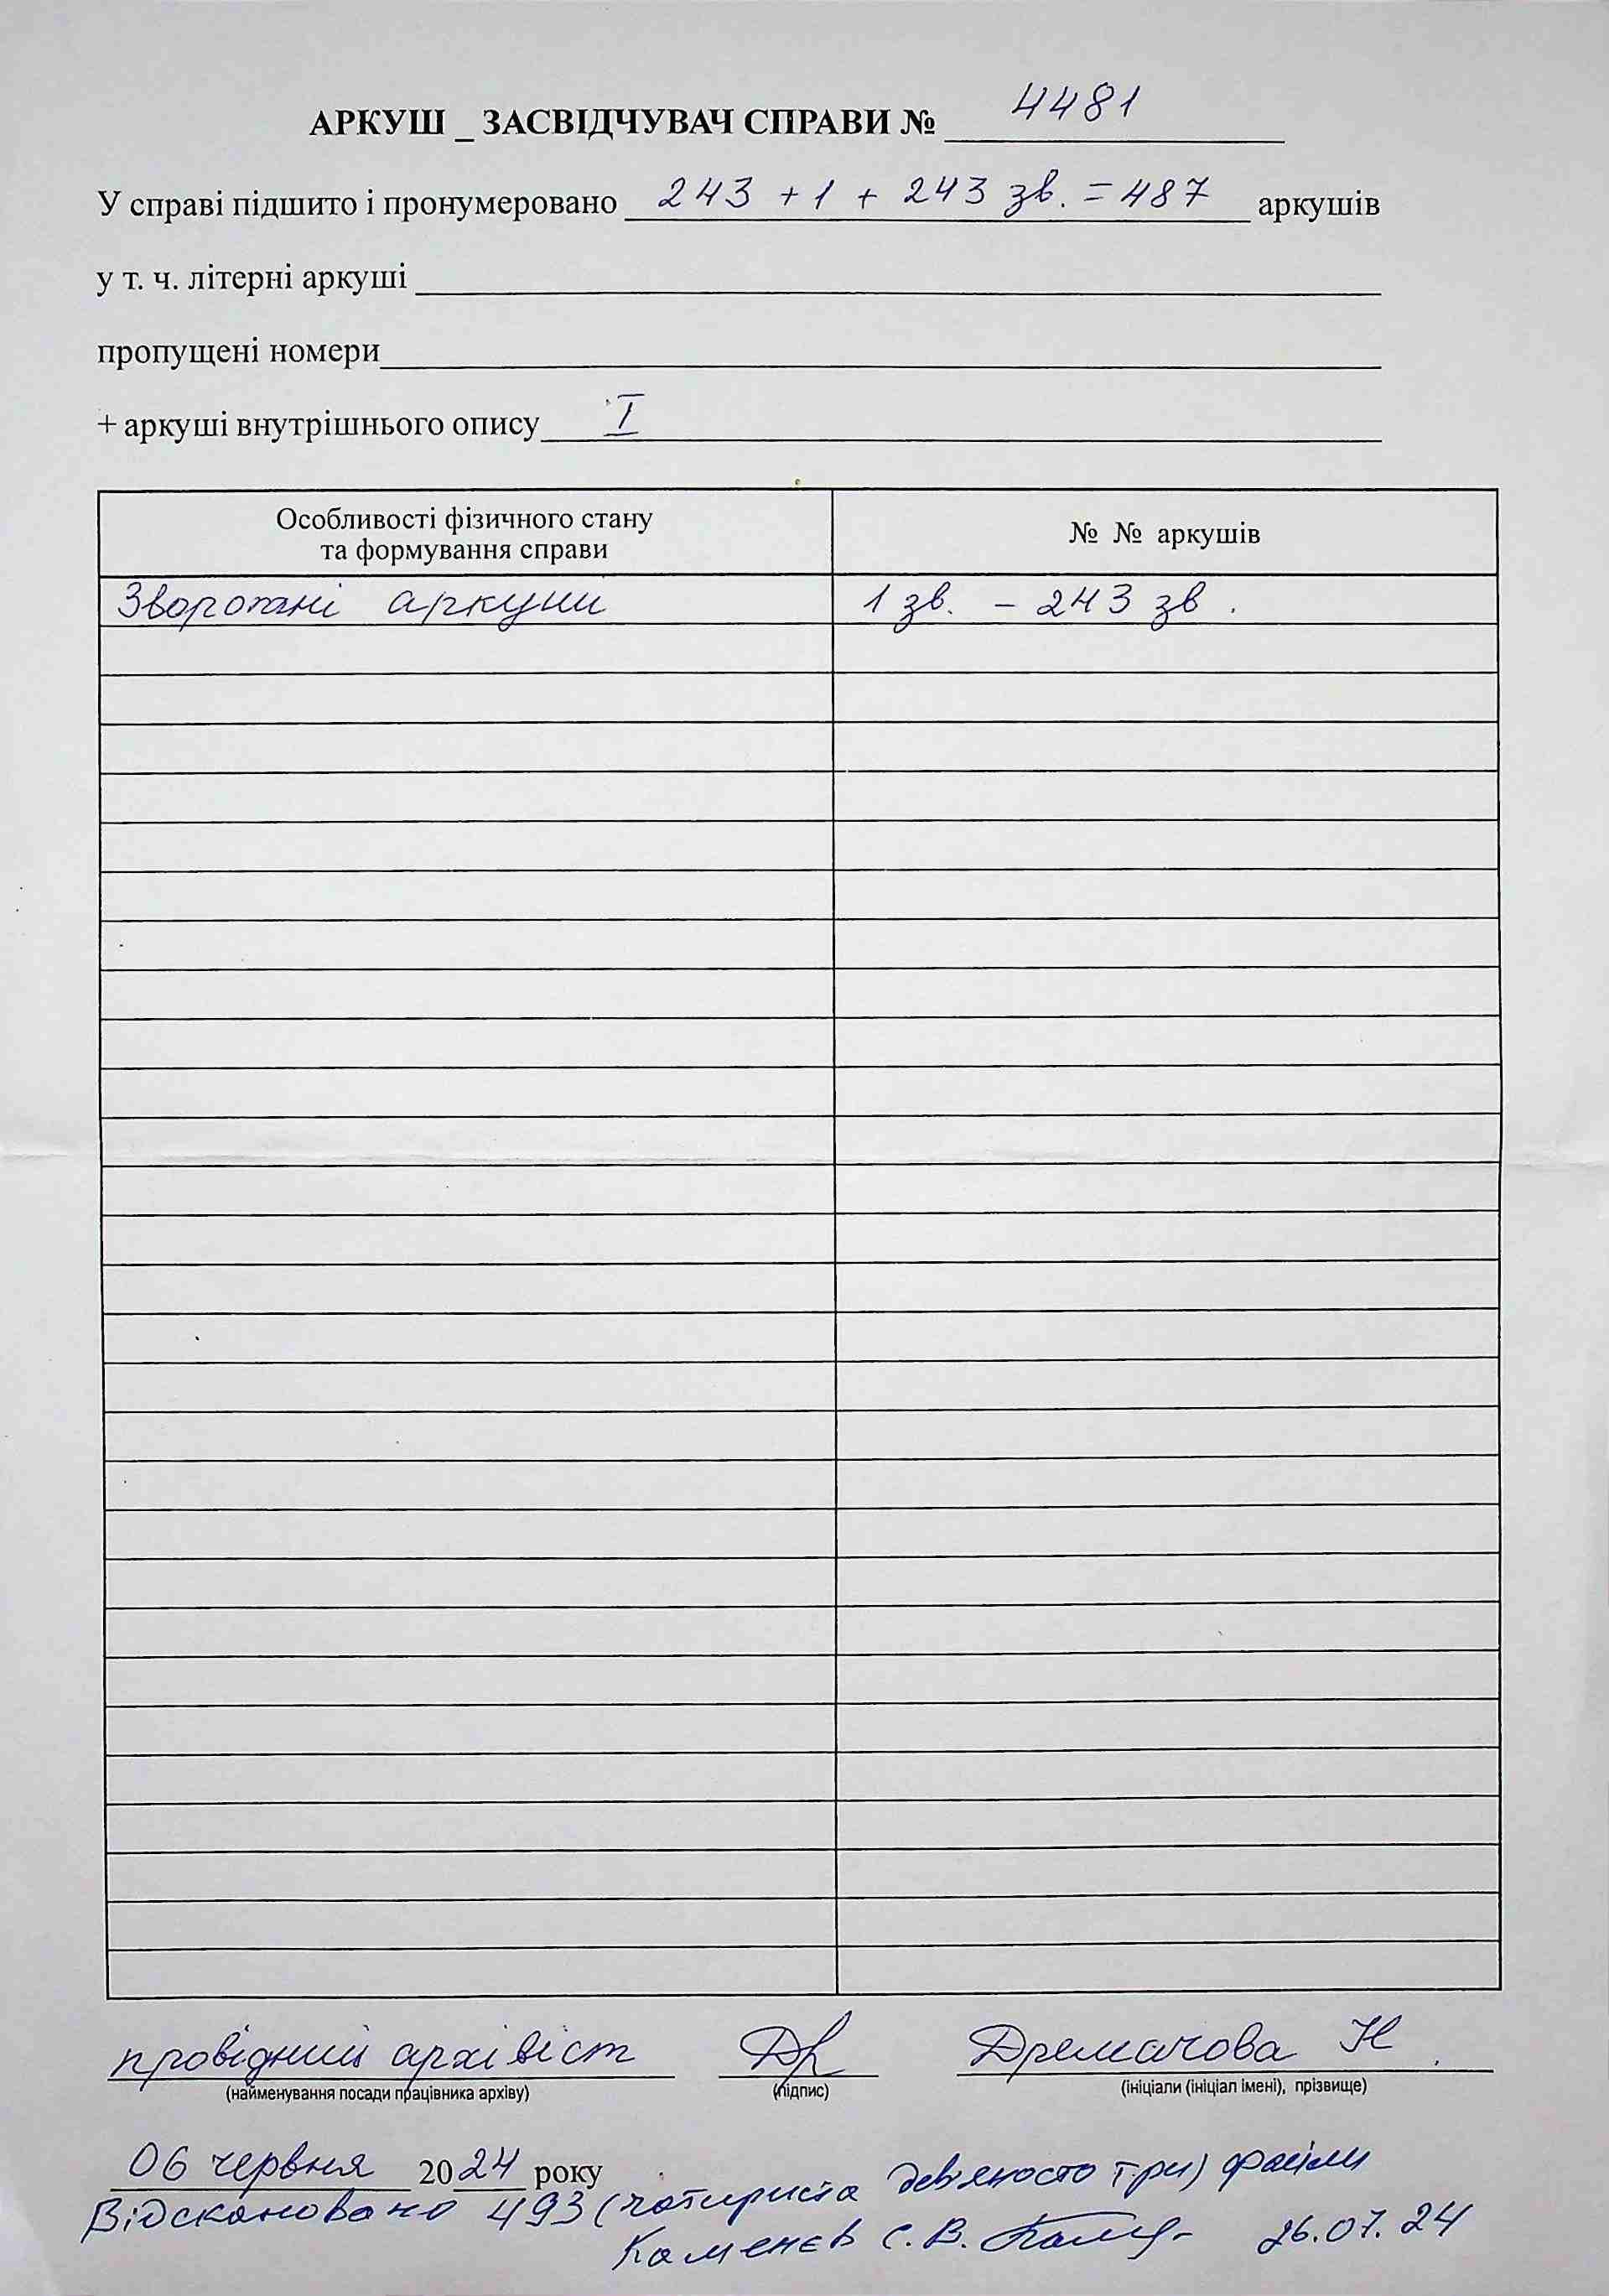 АРКУШ _ ЗАСВІДЧУВАЧ СПРАВИ № 4481
У справі підшито і пронумеровано 243 + 1 + 243 зв. = 487 аркушів
у т. ч. літерні аркуші
пропущені номери
+ аркуші внутрішнього опису I
Особливості фізичного стану
та формування справи
№ № аркушів
Зворотні аркуши 1 зв. – 243 зв.
провідний архівіст Дремачова Н.
(найменування посади працівника архіву) (підпис) (ініціали (ініціал імені), прізвище)
06 червня 2024 року
Відскановано 493 (чотириста дев'яносто три) файли
Каменєв С.В. 26.07.24